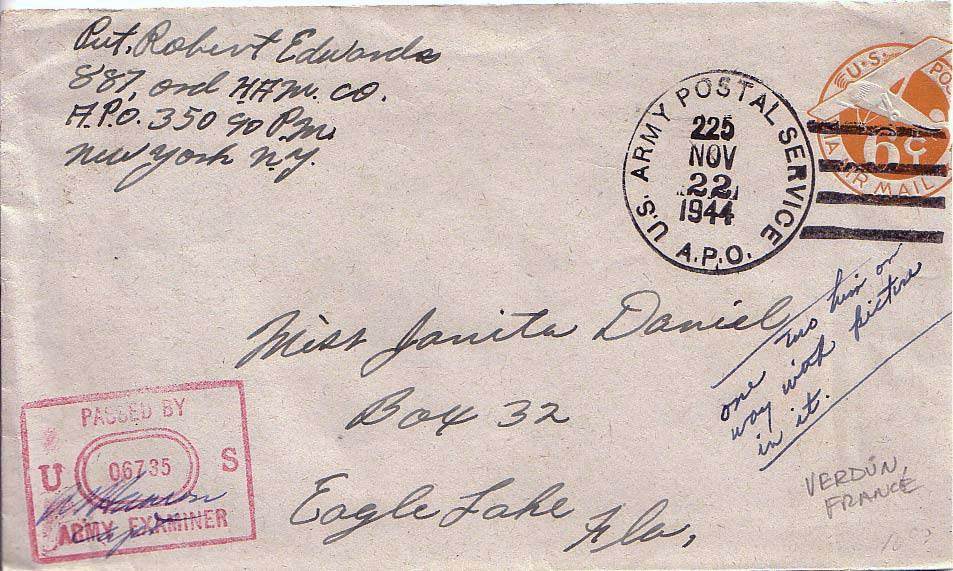 Pvt. Robert Edwards
887, ord H.A.M. CO.
A.P.O. 350 % P.M.
New York N.Y.
U.S. ARMY POSTAL SERVICE
225
NOV
22
1944
A.P.O.
U.S. POS
6¢
VIA AIR MAIL
Miss Janita Daniel
Box 32
Eagle Lake Fla,
two him on
one way with picture
in it.
VERDUN,
FRANCE
PASSED BY
U 06735 S
ARMY EXAMINER
Capt